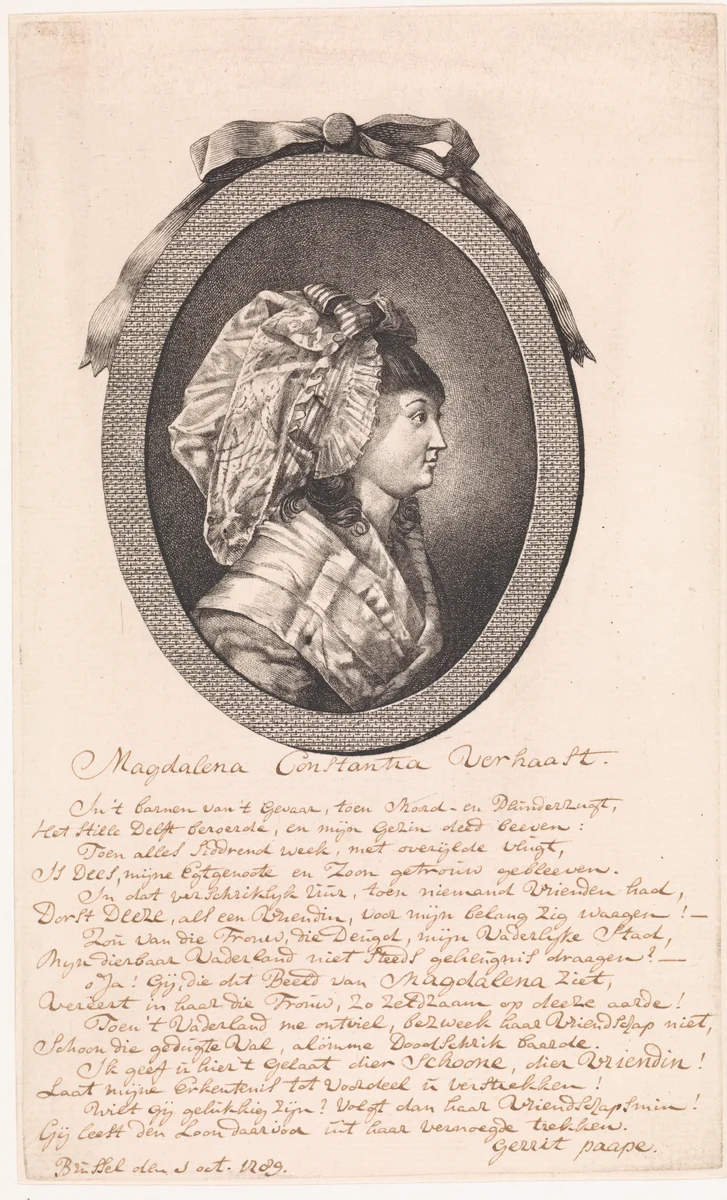 Magdalena Constantia Verhaast.
In't barnen van't Gevaar, toen Moord- en Plunderzugt,
Het Stille Delft beroerde, en mijn Gezin deed beeven:
Toen alles Siddrend week, met overijlde vlugt,
Is Deês, mijne Egtgenoote en Zoon getrouw gebleeven.
In dat verschriklijk Uur, toen niemand Vrienden had,
Dorst Deeze, als een Vriendin, voor mijn belang zig waagen! —
Zoú van die Trouw, die Deugd, mijn Vaderlijke Stad,
Mijn dierbaar Vaderland niet Steeds geheugnis draagen? —
o Ja! Gij, die dit Beeld van Magdalena Ziet,
Vereert in haar die Trouw, Zo Zeldzaam op deeze aarde!
Toen't Vaderland me ontviel, bezweek haar Vriendschap niet,
Schoon die gedugte Val, alömme Doodschrik baarde.
Ik geef ú hier't Gelaat dier Schoone, dier Vriendin!
Laat mijne Erkentenis tot Voordeel ú verstrekken!
Wilt Gij gelukkig Zijn? Volgt dan haar Vriendschapsmin!
Gij leest den Loon daarvoor uit haar vernoegde trekken.
Gerrit paape.
Brussel den 1 oct. 1789.